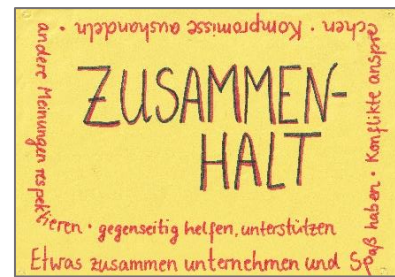 ZUSAMMEN-
HALT
Etwas zusammen unternehmen und Spaß haben · Konflikte ansprechen · Kompromisse aushandeln ·
andere Meinungen respektieren · gegenseitig helfen, unterstützen